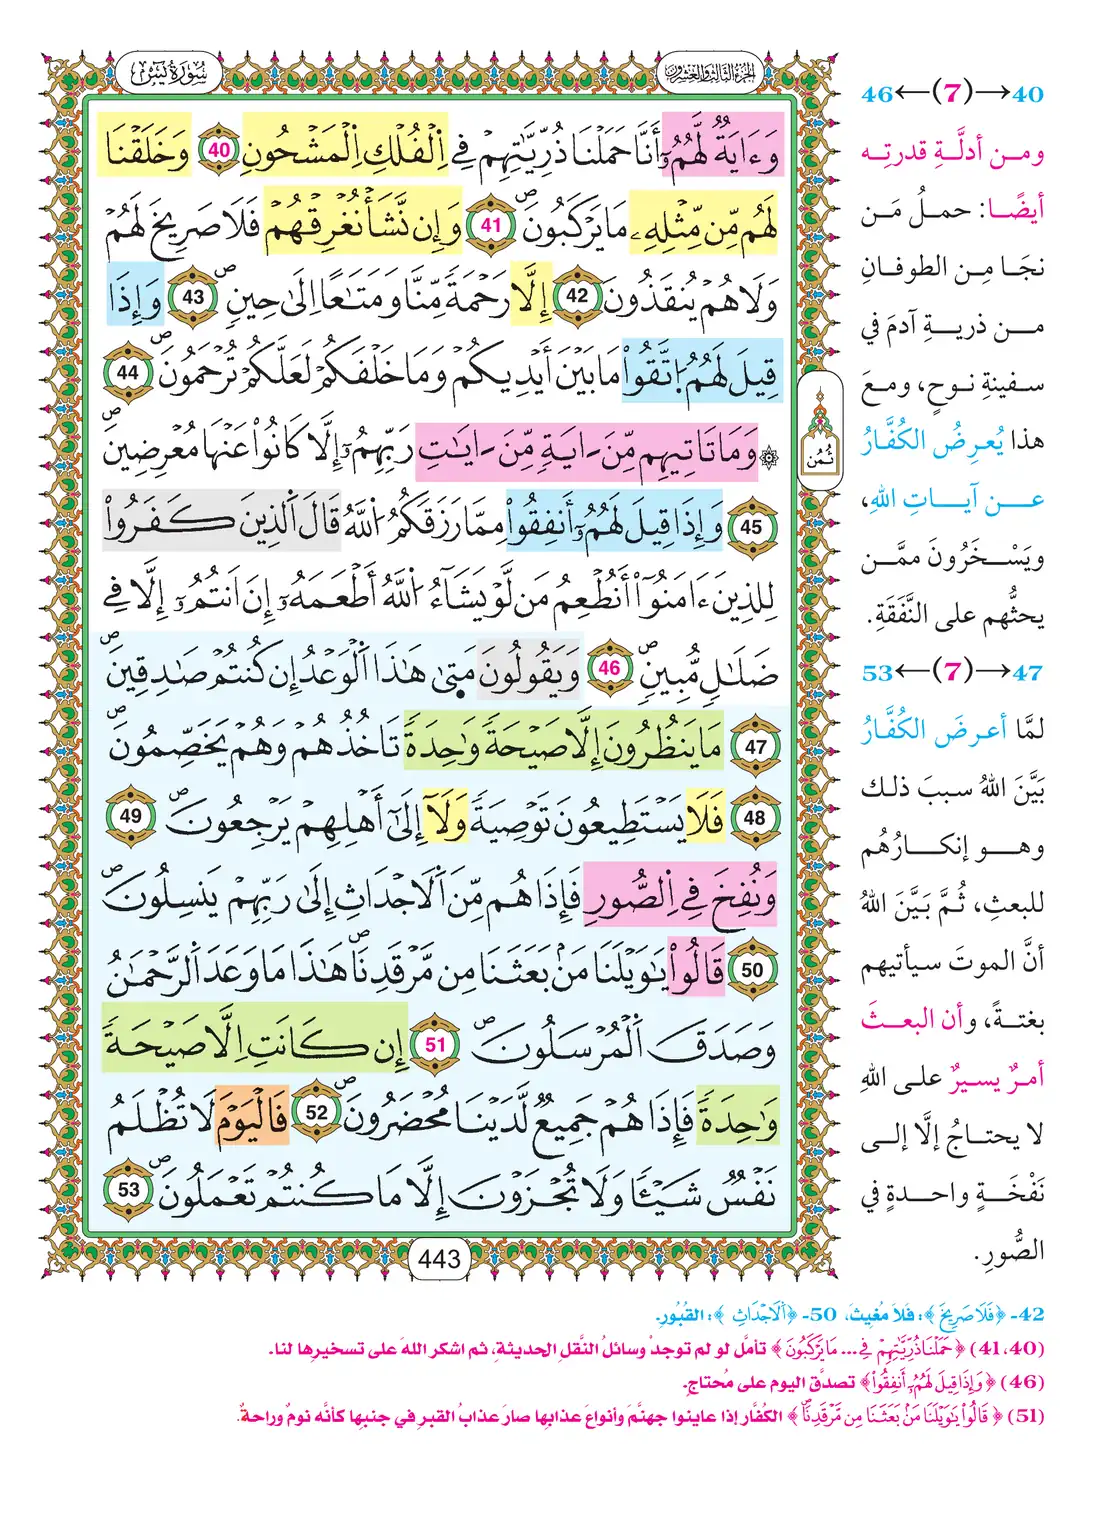 سُورَةُ يسٓ
الجزء الثالث والعشرون
وَءَايَةٞ لَّهُمُۥٓ أَنَّا حَمَلْنَا ذُرِّيَّٰتِهِمْ فِي اِ۬لْفُلْكِ اِ۬لْمَشْحُونِ 40 وَخَلَقْنَا
لَهُم مِّن مِّثْلِهِۦ مَا يَرْكَبُونَۖ 41 وَإِن نَّشَأْ نُغْرِقْهُمْ فَلَا صَرِيخَ لَهُمْ
وَلَا هُمْ يُنقَذُونَ 42 إِلَّا رَحْمَةٗ مِّنَّا وَمَتَٰعاً اِلَىٰ حِينٖۖ 43 وَإِذَا
قِيلَ لَهُمُ اُ۪تَّقُواْ مَا بَيْنَ أَيْدِيكُمْ وَمَا خَلْفَكُمْ لَعَلَّكُمْ تُرْحَمُونَۖ 44
وَمَا تَاتِيهِم مِّنَ ايَةٖ مِّنَ ايَٰتِ رَبِّهِمُۥٓ إِلَّا كَانُواْ عَنْهَا مُعْرِضِينَۖ
45 وَإِذَا قِيلَ لَهُمُۥٓ أَنفِقُواْ مِمَّا رَزَقَكُمُ اُ۬للَّهُ قَالَ اَ۬لذِينَ كَفَرُواْ
لِلذِينَ ءَامَنُوٓاْ أَنُطْعِمُ مَن لَّوْ يَشَآءُ اُ۬للَّهُ أَطْعَمَهُۥٓ إِنَ اَنتُمُۥٓ إِلَّا فِي
ضَلَٰلٖ مُّبِينٖۖ 46 وَيَقُولُونَ مَت۪ىٰ هَٰذَا اَ۬لْوَعْدُ إِن كُنتُمْ صَٰدِقِينَۖ
47 مَا يَنظُرُونَ إِلَّا صَيْحَةٗ وَٰحِدَةٗ تَاخُذُهُمْ وَهُمْ يَخَصِّمُونَۖ
48 فَلَا يَسْتَطِيعُونَ تَوْصِيَةٗ وَلَآ إِلَىٰٓ أَهْلِهِمْ يَرْجِعُونَۖ 49
وَنُفِخَ فِي اِ۬لصُّورِ فَإِذَا هُم مِّنَ اَ۬لَاجْدَاثِ إِلَىٰ رَبِّهِمْ يَنسِلُونَۖ
50 قَالُواْ يَٰوَيْلَنَا مَنۢ بَعَثَنَا مِن مَّرْقَدِنَاۖ هَٰذَا مَا وَعَدَ اَ۬لرَّحْمَٰنُ
وَصَدَقَ اَ۬لْمُرْسَلُونَۖ 51 إِن كَانَتِ اِلَّا صَيْحَةٗ
وَٰحِدَةٗ فَإِذَا هُمْ جَمِيعٞ لَّدَيْنَا مُحْضَرُونَۖ 52 فَالْيَوْمَ لَا تُظْلَمُ
نَفْسٞ شَيْـٔٗا وَلَا تُجْزَوْنَ إِلَّا مَا كُنتُمْ تَعْمَلُونَۖ 53
ثُمُن
443
40→(7)←46
ومن أدلَّةِ قدرتِه
أيضًا: حملُ مَن
نجَا مِن الطوفانِ
من ذريةِ آدمَ في
سفينةِ نوحٍ، ومعَ
هذا يُعرِضُ الكُفَّارُ
عن آياتِ اللهِ،
ويَسْخَرُونَ ممَّن
يحثُّهم على النَّفَقَةِ.
47→(7)←53
لمَّا أعرضَ الكُفَّارُ
بَيَّنَ اللهُ سببَ ذلك
وهو إنكارُهُم
للبعثِ، ثُمَّ بَيَّنَ اللهُ
أنَّ الموتَ سيأتيهم
بغتةً، وأن البعثَ
أمرٌ يسيرٌ على اللهِ
لا يحتاجُ إلَّا إلى
نَفْخَةٍ واحدةٍ في
الصُّورِ.
42- ﴿فَلَا صَرِيخَ﴾: فَلا مُغِيثَ، 50- ﴿اَ۬لَاجْدَاثِ﴾: القُبُورِ.
(41،40) ﴿حَمَلْنَا ذُرِّيَّٰتِهِمْ فِي ... مَا يَرْكَبُونَ﴾ تأمَّل لو لم توجدْ وسائلُ النَّقلِ الحديثةِ، ثم اشكر اللهَ على تسخيرِها لنا.
(46) ﴿وَإِذَا قِيلَ لَهُمُۥٓ أَنفِقُواْ﴾ تصدَّق اليوم على مُحتاجٍ.
(51) ﴿قَالُواْ يَٰوَيْلَنَا مَنۢ بَعَثَنَا مِن مَّرْقَدِنَاۖ﴾ الكُفَّار إذا عاينوا جهنَّمَ وأنواعَ عذابِها صارَ عذابُ القبرِ في جنبِها كأنَّه نومٌ وراحةٌ.